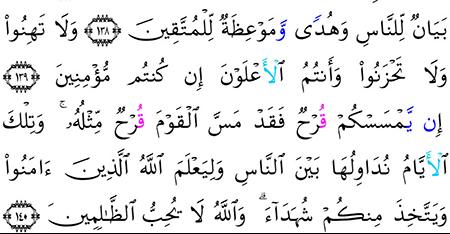 بَيَانٌ لِّلنَّاسِ وَهُدًى وَّمَوْعِظَةٌ لِّلْمُتَّقِينَ ﴿١٣٨﴾ وَلَا تَهِنُوا۟
وَلَا تَحْزَنُوا۟ وَأَنتُمُ الْأَعْلَوْنَ إِن كُنتُم مُّؤْمِنِينَ ﴿١٣٩﴾
إِن يَّمْسَسْكُمْ قُرْحٌ فَقَدْ مَسَّ الْقَوْمَ قُرْحٌ مِّثْلُهُۥ ۚ وَتِلْكَ
الْأَيَّامُ نُدَاوِلُهَا بَيْنَ النَّاسِ وَلِيَعْلَمَ اللَّهُ الَّذِينَ ءَامَنُوا۟
وَيَتَّخِذَ مِنكُمْ شُهَدَآءَ ۗ وَاللَّهُ لَا يُحِبُّ الظَّـٰلِمِينَ ﴿١٤٠﴾